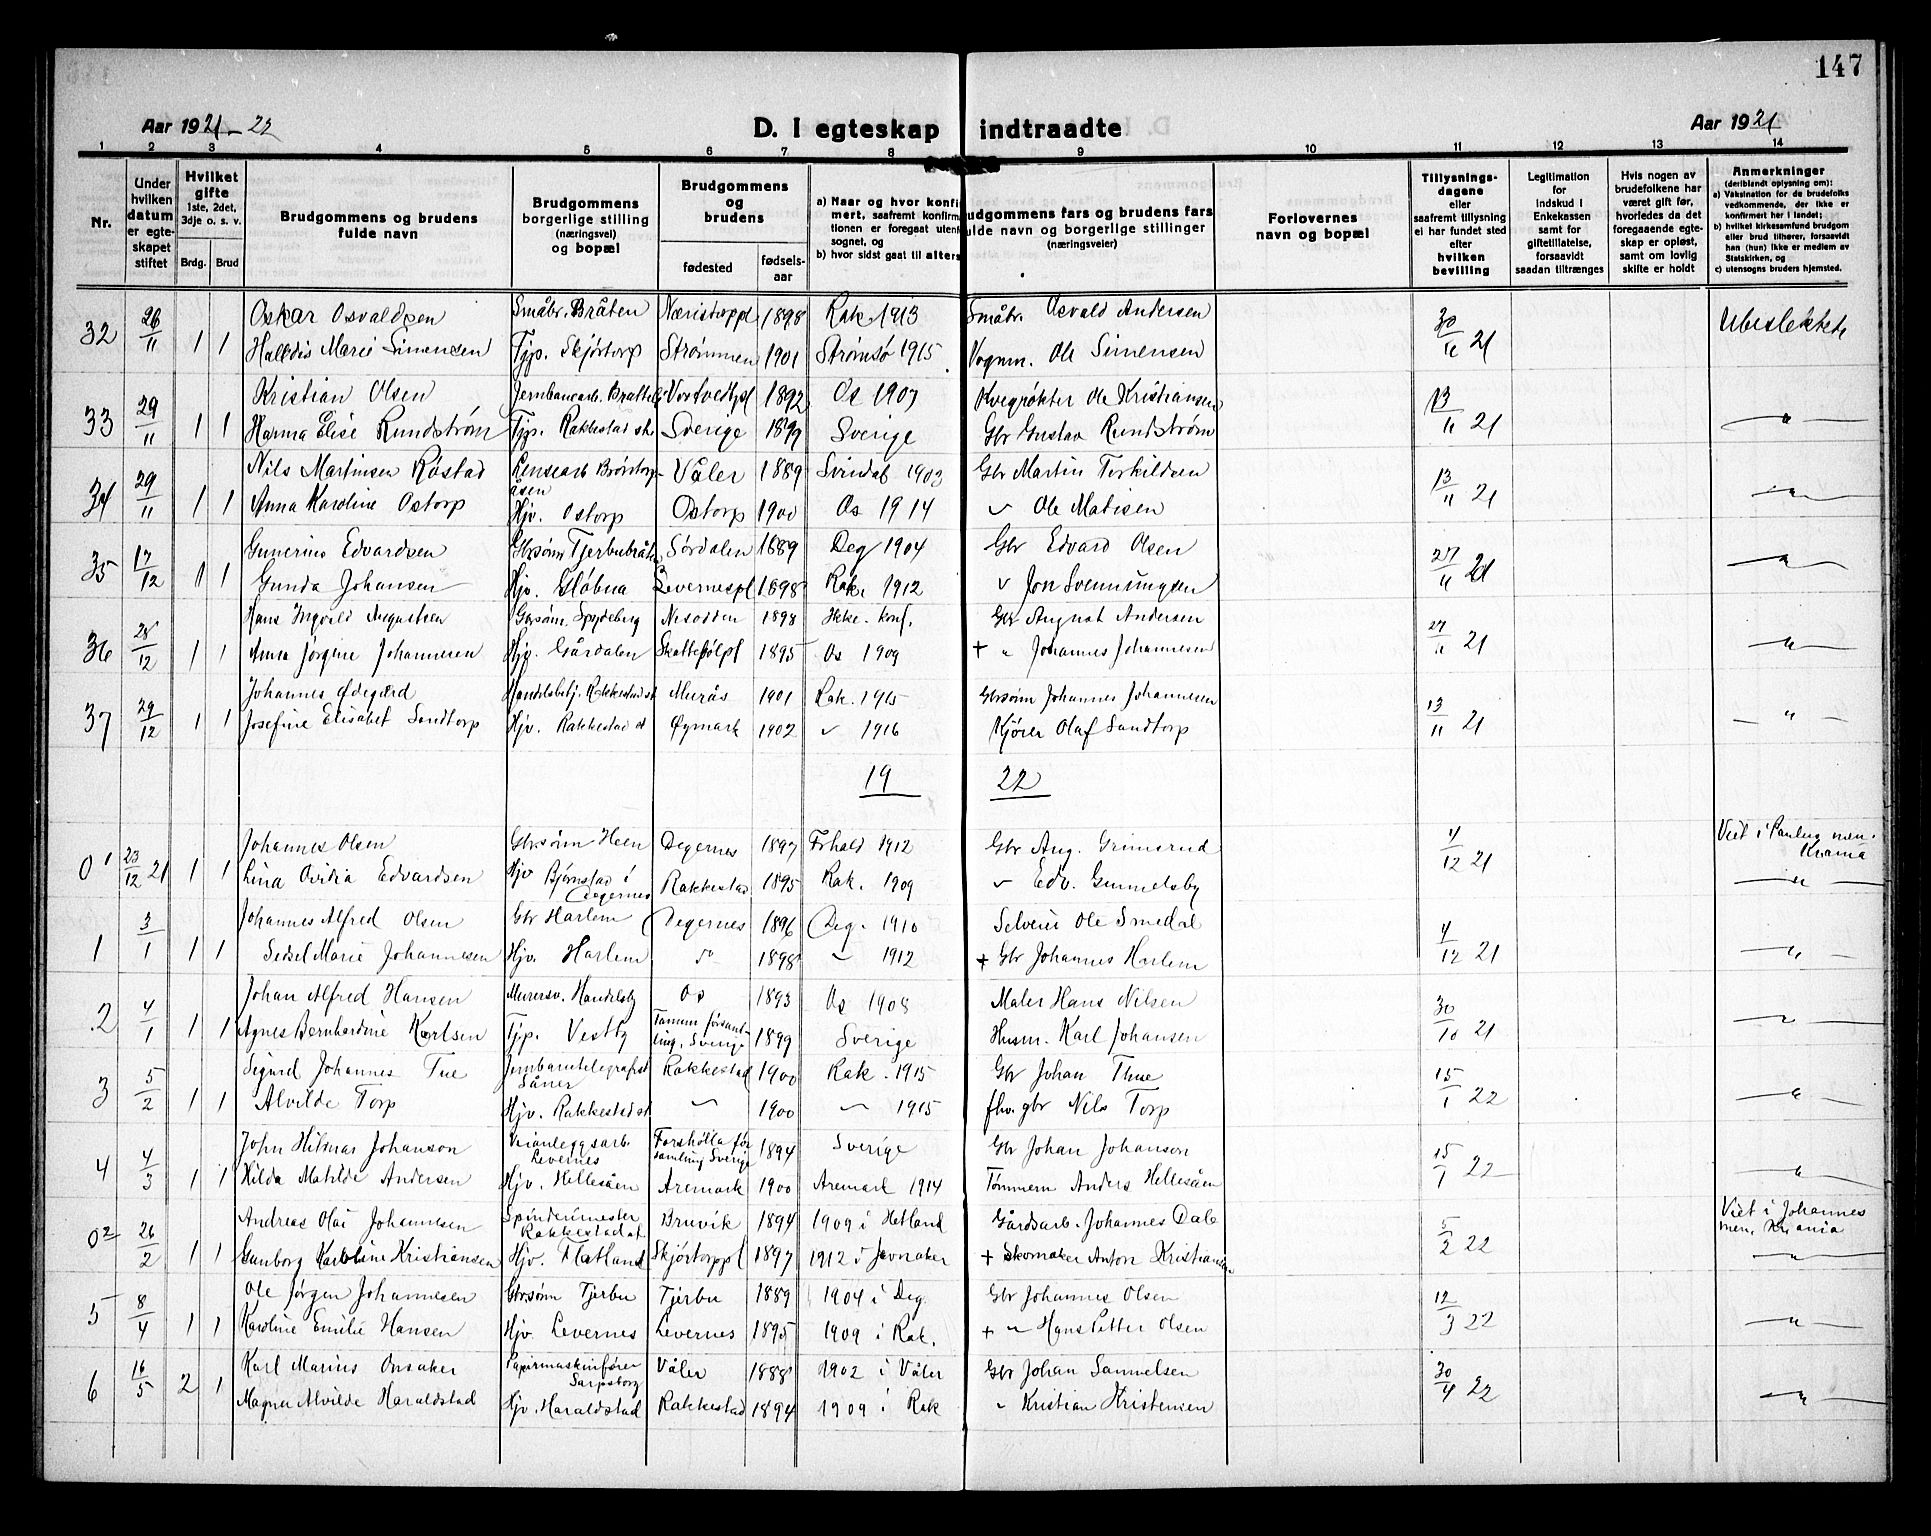 147
Aar 1921-22
D. I egteskap indtraadte
Aar 1921
1 2 3 4 5 6 7 8 9 10 11 12 13 14
Nr.
Under hvilken datum er egteskapet stiftet
Hvilket gifte 1ste, 2det, 3dje o. s. v.
Brdg. Brud
Brudgommens og brudens fulde navn
Brudgommens borgerlige stilling (næringsvei) og bopæl
Brudgommens og brudens
fødested
fødsels-aar
a) Naar og hvor konfirmert, saafremt konfirmationen er foregaat utenfor sognet, og
b) hvor sidst gaat til alters
Brudgommens fars og brudens fars fulde navn og borgerlige stillinger (næringsveier)
Forlovernes navn og bopæl
Tillysningsdagene eller saafremt tillysning ei har fundet sted efter hvilken bevilling
Legitimation for indskud i Enkekassen samt for giftetillatelse, forsaavidt saadan tiltrænges
Hvis nogen av brudefolkene har været gift før, hvorledes da det foregaaende egteskap er opløst, samt om lovlig skifte er holdt
Anmerkninger (deriblandt oplysning om):
a) Vaksination for de brudefolks vedkommende, der ikke er konfirmert her i landet;
b) hvilket kirkesamfund brudgom eller brud tilhører, forsaavidt han (hun) ikke er medlem av Statskirken, og
c) utensogns bruders hjemsted.
32 26/11 1 1 Oskar Osvaldsen Småbr. Bråten Næristorppl 1898 Rak 1913 Småbr. Osvald Andersen 30/11 21 Ubeslektede
Halldis Marie Simensen Tjp. Skjørtorp Strømmen 1901 Strømsø 1915 Vognm. Ole Simensen
33 29/11 1 1 Kristian Olsen Jernbanearb. 1892 Os 1907 Kvegrøkter Ole Kristiansen 13/11 21 — " —
Hanna Elise Rundstrøm Tjp. Rakkestad st. Sverige 1899 Sverige Gbr Gustav Rundstrøm
34 29/11 1 1 Nils Martinsen Røstad Våler 1889 Svindal 1903 Gbr Martin Torkildsen 13/11 21 — " —
Anna Karoline Ostorp Hjv. Ostorp Ostorp 1900 Os 1914 " Ole Matisen
35 17/12 1 1 Gunerius Edvardsen Gbrsønn Tjerbubråten Sørdalen 1889 Deg 1904 Gbr Edvard Olsen 27/11 21 — " —
Gunda Johansen Hjv. Gløbua Levernespl 1898 Rak. 1912 " Jon Svenningsen
36 28/12 1 1 Hans Ingvald Augustsen Gbrsønn. Spydeberg Nesodden 1898 Ikke konf. Gbr August Andersen 27/11 21 — " —
Anna Jørgine Johannesen Hjv. Gårdalen 1895 Os 1909 + " Johannes Johannesen
37 29/12 1 1 Johannes Ødegård Handelsbetj. Rakkestad st Murås 1901 Rak. 1915 Gbrsønn Johannes Johannesen 13/11 21 — " —
Josefine Elisabet Sandtorp Hjv. Rakkestad st Øymark 1902 " 1916 Kjører Olaf Sandtorp
19 22
01 23/12 21 1 1 Johannes Olsen Gbrsønn Heen Degernes 1897 Frhald 1912 Gbr Aug. Grimsrud 4/12 21 Viet i Paulus men. Krania
Lina Ovidia Edvardsen Hjv Bjørnstad i Degernes Rakkestad 1895 Rak. 1909 " Edv. Gunnelsby — " —
1 3/1 1 1 Johannes Alfred Olsen Gbr Harlem Degernes 1896 Deg. 1910 Selveier Ole Smedal 4/12 21 — " —
Sidsel Marie Johannesen Hjv. Harlem " 1898 " 1912 + Gbr Johannes Harlem
2 4/1 1 1 Johan Alfred Hansen Murersv. Handelsby Os 1893 Os 1908 Maler Hans Nilsen 30/10 21 — " —
Agnes Bernhardine Karlsen Tjp. Vestby Tanum församling, Sverige 1899 Sverige Husm. Karl Johansen
3 5/2 1 1 Sigurd Johannes Tue Jernbanetelegrafist Såner Rakkestad 1900 Rak. 1915 Gbr Johan Thue 15/1 22 — " —
Alvilde Torp Hjv. Rakkestad st " 1900 " 1915 fhv. gbr Nils Torp
4 4/3 1 1 John Hilmar Johanson Veianlegsarb. Levernes Forshälla församling Sverige 1894 Sverige Gbr Johan Johanson 15/1 22 — " —
Hilda Matilde Andersen Hjv. Hellesåen Aremark 1900 Aremark 1914 Tømmerm Anders Hellesåen
02 26/2 1 1 Andreas Olai Johannesen Spinderimester Rakkestad st. Bruvik 1894 1909 i Hetland Gårdsarb. Johannes Dale 5/2 22 Viet i Johannes men. Krania
Gunborg Karoline Kristiansen Hjv. Flatland Skjørtorppl 1897 1912 i Jevnaker + Skomaker Anton Kristiansen — " —
5 8/4 1 1 Ole Jørgen Johannesen Gbrsønn Tjerbu Tjerbu 1889 1904 i Deg. Gbr Johannes Olsen 12/3 22 — " —
Karoline Emilie Hansen Hjv. Levernes Levernes 1895 1909 i Rak. + " Hans Petter Olsen
6 16/5 2 1 Karl Marius Onsaker Papirmaskinfører Sarpsborg Våler 1888 1902 i Våler Gbr Johan Samuelsen 30/4 22 — " —
Magna Alvilde Haraldstad Hjv. Haraldstad Rakkestad 1894 1909 i Rak " Kristian Kristensen